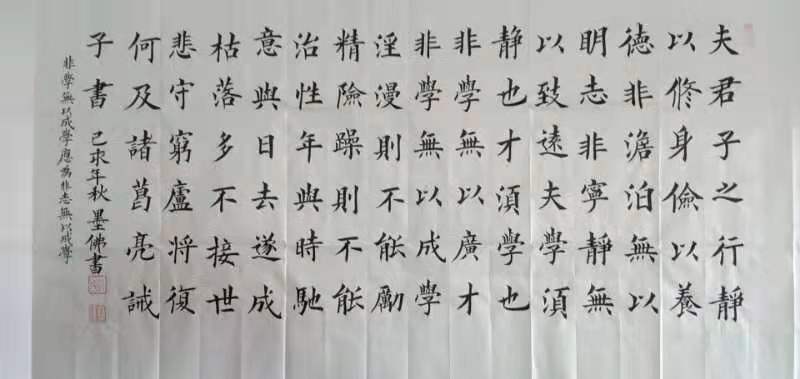 夫君子之行靜
以修身儉以養
德非澹泊無以
明志非寧靜無
以致遠夫學須
靜也才須學也
非學無以廣才
非學無以成學
淫漫則不能勵
精險躁則不能
治性年與時馳
意與日去遂成
枯落多不接世
悲守窮廬將復
何及諸葛亮誡
子書 己亥年秋墨佛書
非學無以成學應為非志無以成學